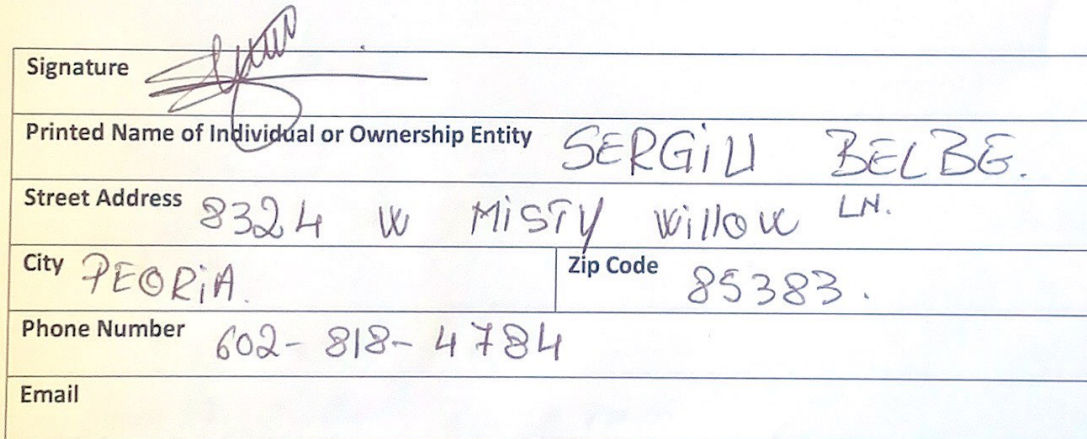 Signature
Printed Name of Individual or Ownership Entity SERGiU BELBE.
Street Address 8324 W MiSTY Willow LN.
City PEORiA. Zip Code 85383.
Phone Number 602-818-4784
Email